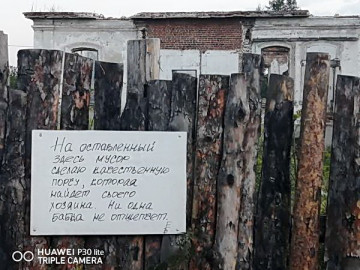 На оставленный
здесь мусор
сделаю качественную
порчу, которая
найдет своего
хозяина. Ни одна
бабка не отшепчет.
HUAWEI P30 lite
TRIPLE CAMERA